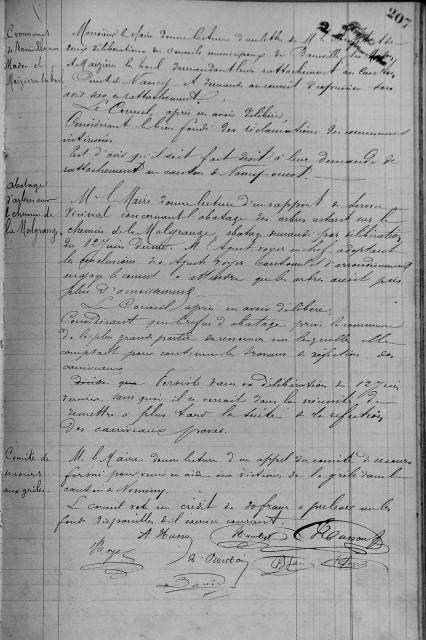 207
Communes
de
et
Monsieur le Maire donne lecture d'une lettre de M.
deux délibérations des conseils municipaux de
et Maizières demandant leur rattachement au canton
Ouest de Nancy, et demande au conseil d'exprimer son
avis sur ce rattachement.
Le Conseil, après en avoir délibéré,
Considérant le bien fondé des réclamations des communes
intéressées
Est d'avis qu'il soit fait droit à leur demande de
rattachement au canton de Nancy-ouest.
abatage
d'arbres sur
le chemin de
la Malgrange
M. le Maire donne lecture d'un rapport du service
Vicinal concernant l'abatage des arbres restant sur le
chemin de la Malgrange, abatage demandé par délibération
du 12 juin dernier. M. l'Agent voyer en chef adoptant
les conclusions des Agents voyer cantonal et d'arrondissement
engage le conseil à attendre que les arbres aient pris
plus d'accroissement.
Le Conseil, après en avoir délibéré,
Considérant que le refus d'abatage prive la commune
de la plus grande partie des ressources sur lesquelles elle
comptait pour continuer les travaux de réfection des
caniveaux
Persiste dans sa délibération du 12 juin
dernier, sans quoi il se verrait dans la nécessité de
remettre à plus tard la suite de la réfection
des caniveaux pavés.
Comité de
secours
aux grêlés
M. le Maire donne lecture d'un appel du comité de secours
formé pour venir en aide aux victimes de la grêle dans le
canton de Nomeny.
Le conseil vote un crédit de francs à prélever sur les
fonds disponibles de l'exercice courant.
A Husson
Humbert
Husson
Noyer